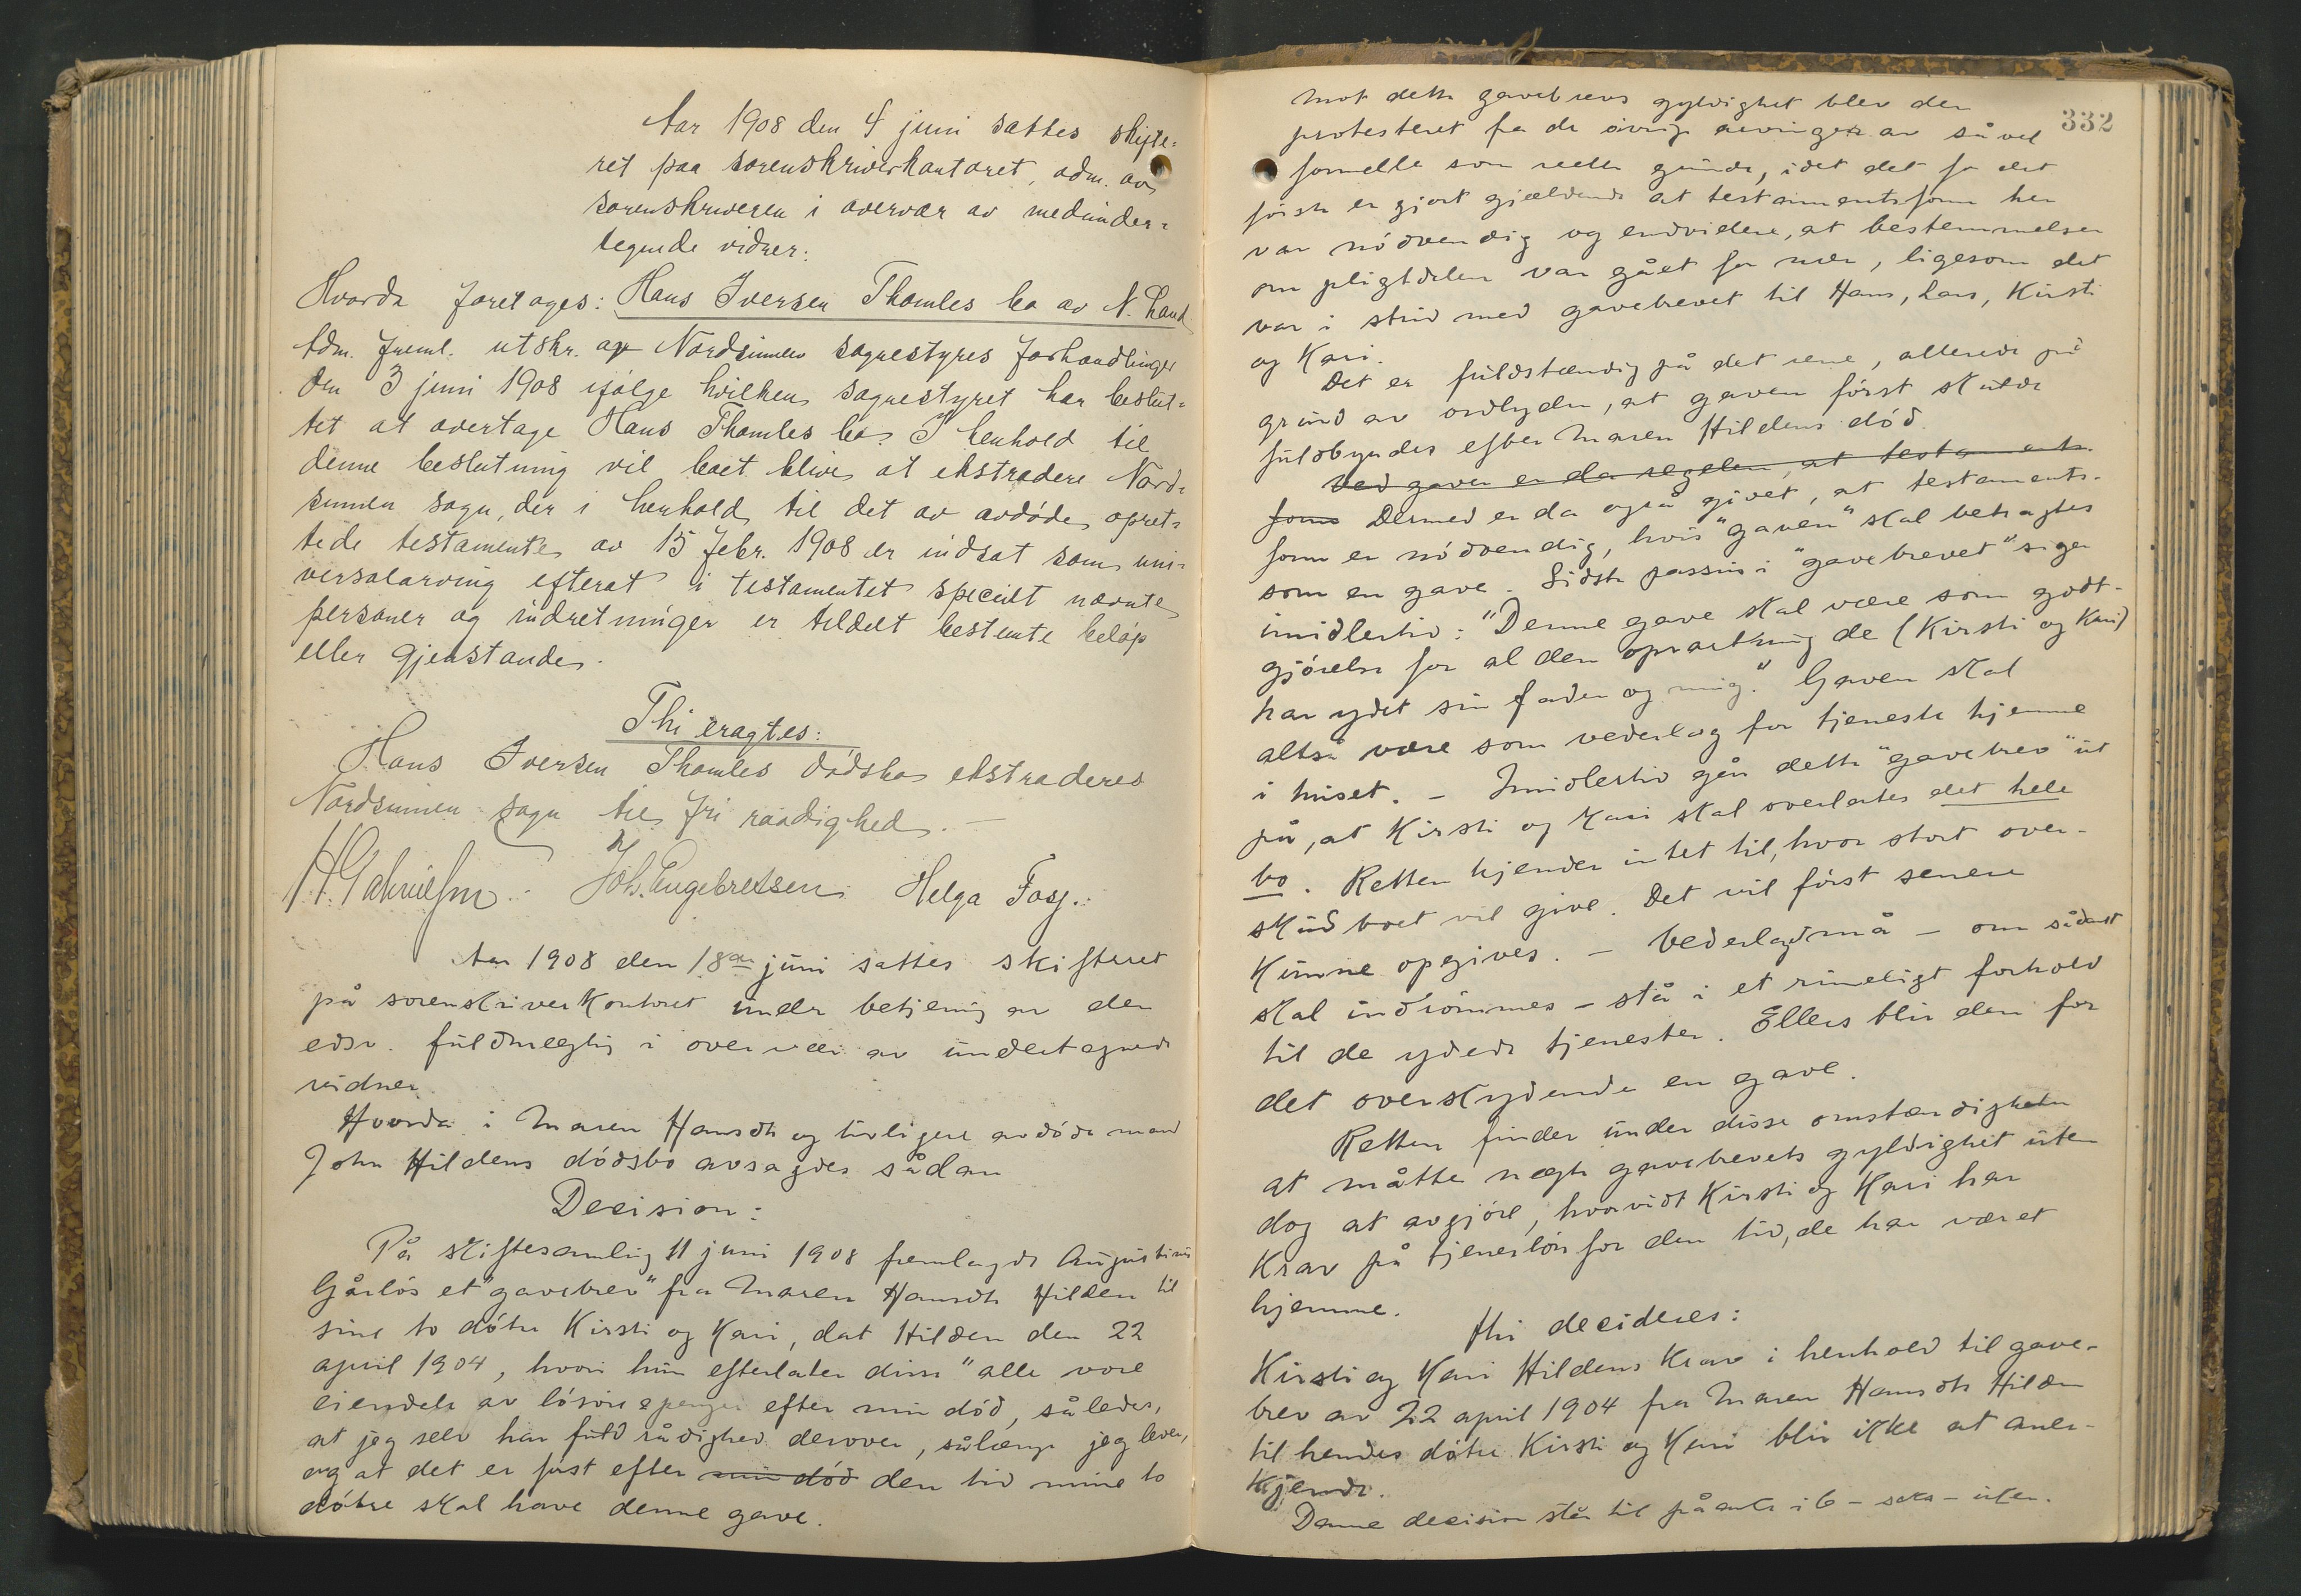 Aar 1908 den 4 juni sattes skifte-
ret paa sorenskriverkontoret, adm. av
sorenskriveren i overvær av medunder-
tegnede vidner:
Hvorda foretages: Hans Iversen Thomles bo av N. Land
Adm. freml. utskr. av Nordsinnen sognestyres forhandlinger
den 3 juni 1908 ifølge hvilken sognestyret har beslut-
tet at overtage Hans Thomles bo. I henhold til
denne beslutning vil boet blive at ekstradere Nord-
sinnen sogn, der i henhold til det av avdøde opret-
tede testamente av 15 febr. 1908 er indsat som uni-
versalarving efterat i testamentet specielt nævnte
personer og indretninger er tildelt bestemte beløp
eller gjenstande.
Thi eragtes:
Hans Iversen Thomles dødsbo ekstraderes
Nordsinnen sogn til fri raadighed. —
H. Gabrielsen. Joh. Engebretsen. Helga Fosj.
Aar 1908 den 18de juni sattes skifteret
på sorenskriverkontoret under betjening av den
edsv. fuldmegtig i overvær av undertegnede
vidner.
Hvorda i Maren Hansdtr og tidligere avdøde mand
John Hildens dødsbo avsagdes sådan
Decision:
På skiftesamling 11 juni 1908 fremlagde Augustinus
Gårløs et "gavebrev" fra Maren Hansdtr Hilden til
sine to døtre Kirsti og Kari, dat Hilden den 22
april 1904, hvori hun efterlater disse "alle vore
eiendele av løsøre & penger efter min død, således,
at jeg selv har fuld rådighed derover, sålænge jeg lever,
og at det er først efter min død den tid mine to
døtre skal have denne gave.
332
Mot dette gavebrevs gyldighet blev der
protesteret fra de øvrige arvinger av såvel
formelle som reelle grunde, idet det for det
første er gjort gjældende at testamentsform her
var nødvendig og endvidere, at bestemmelsen
om pligtdelen var gået for nær, ligesom det
var i strid med gavebrevet til Hans, Lars, Kirsti
og Kari.
Det er fuldstændig på det rene, allerede på
grund av ordlyden, at gaven først skulde
fuldbyrdes efter Maren Hildens død.
Ved gaver er da regelen, at testaments-
form Dermed er da også givet, at testaments-
form er nødvendig, hvis "gaven" skal betragtes
som en gave. Sidste passus i "gavebrevet" siger
imidlertid: "Denne gave skal være som godt-
gjørelse for al den opvartning de (Kirsti og Kari)
har ydet sin fader og mig." Gaven skal
altså være som vederlag for tjeneste hjemme
i huset. – Imidlertid går dette "gavebrev" ut
på, at Kirsti og Kari skal overlates det hele
bo. Retten kjender intet til, hvor stort over-
skud boet vil give. Det vil først senere
kunne opgives. – Vederlaget må – om sådant
skal indrømmes – stå i et rimeligt forhold
til de ydede tjenester. Ellers blir den for
det overskydende en gave.
Retten finder under disse omstændigheter
at måtte nægte gavebrevets gyldighet uten
dog at avgjøre, hvorvidt Kirsti og Kari har
krav på tjenerløn for den tid, de har været
hjemme.
Thi decideres:
Kirsti og Kari Hildens krav i henhold til gave-
brev av 22 april 1904 fra Maren Hansdtr Hilden
til hendes døtre Kirsti og Kari blir ikke at aner-
kjende.
Denne decision står til påanke i 6 – seks – uker.